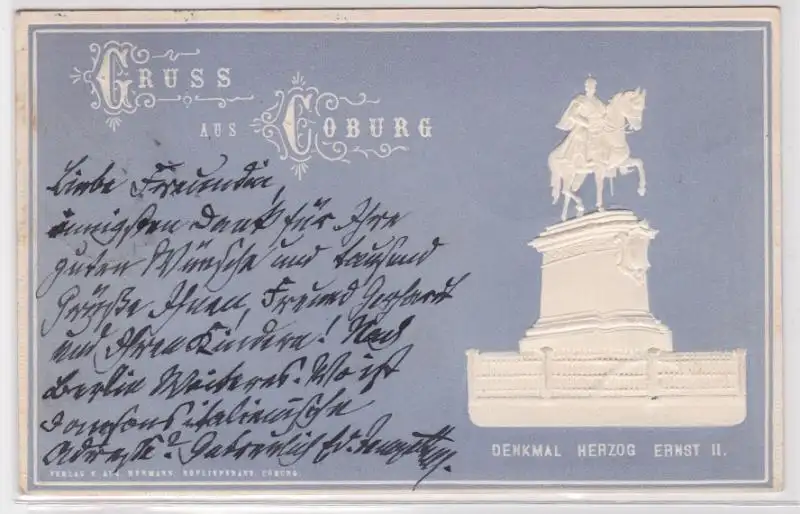 GRUSS
AUS COBURG
Liebe Freundin,
innigsten Dank für Ihre
guten Wünsche und tausend
Grüße Ihnen, Freund Gerhard
und Ihren Kindern! Nach
Berlin Weiteres. Wo ist
italienische
Adresse? Getreulich
DENKMAL HERZOG ERNST II.
VERLAG V. HOFLIEFERANT COBURG.